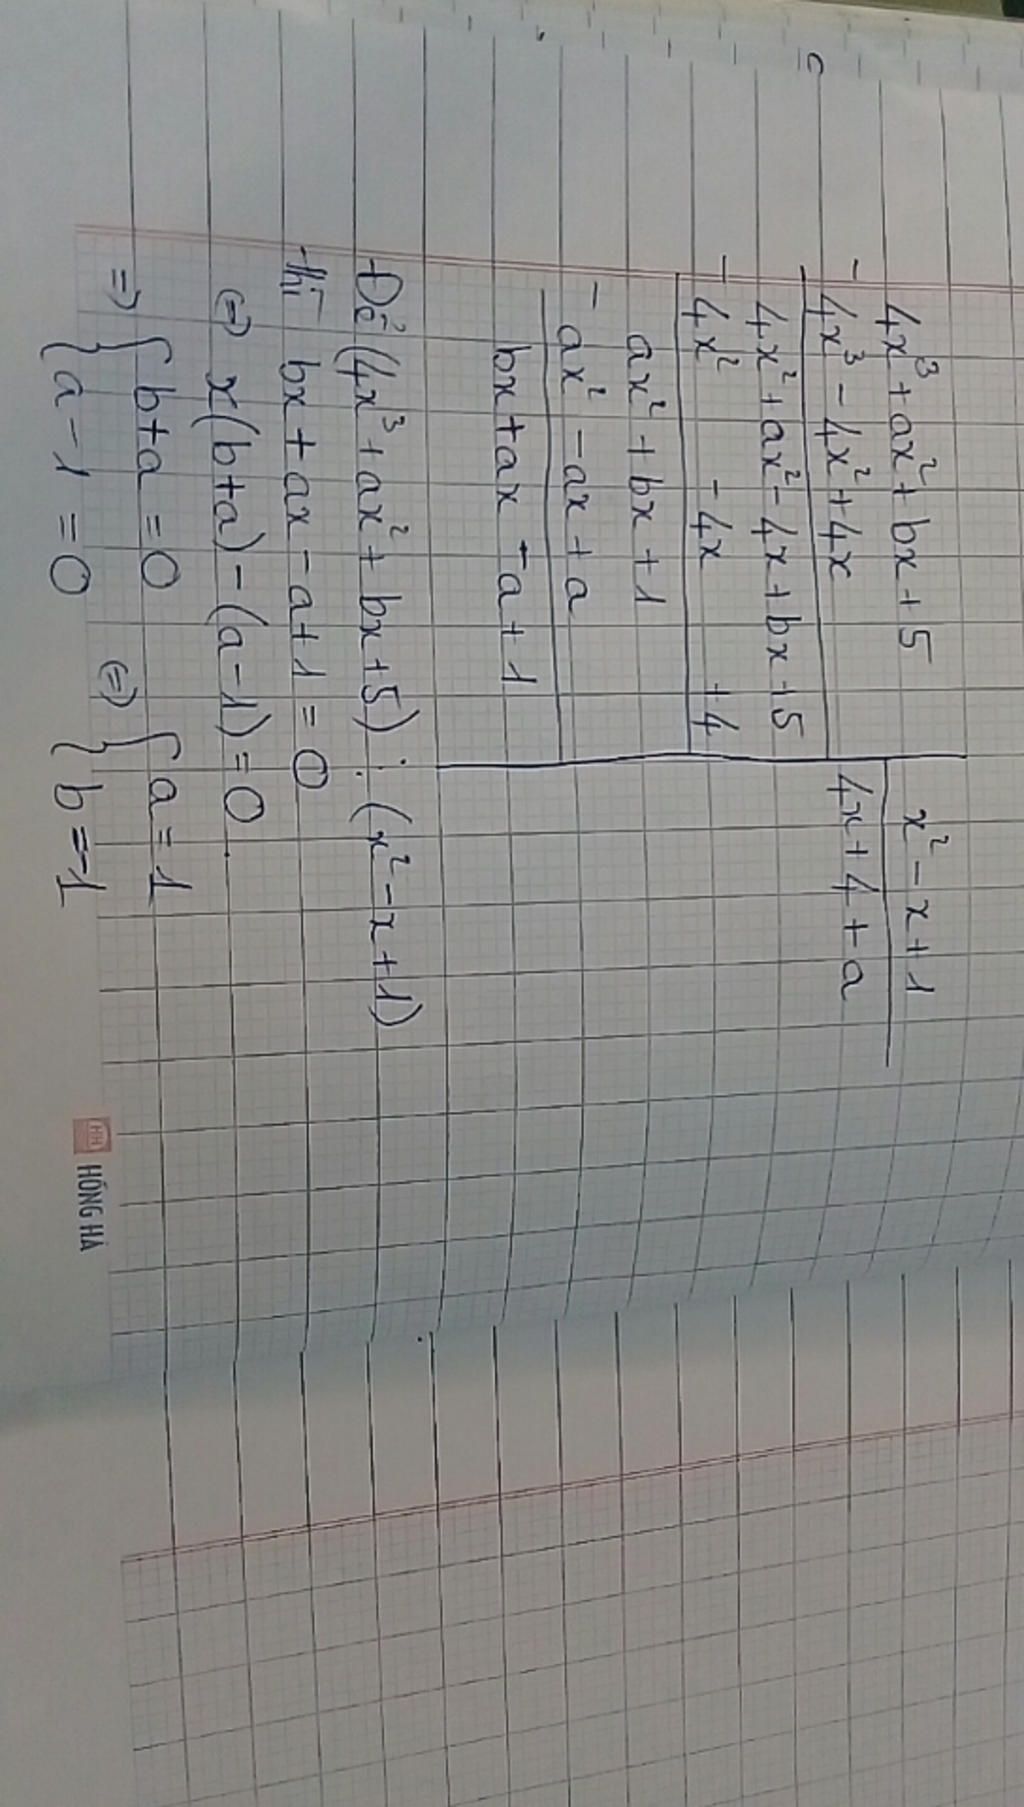 c
4x³ + ax² + bx + 5 | x² - x + 1
- 4x³ - 4x² + 4x | 4x + 4 + a
4x² + ax² - 4x + bx + 5
- 4x² - 4x + 4
ax² + bx + 1
- ax² - ax + a
bx + ax - a + 1
Để (4x³ + ax² + bx + 5) ⋮ (x² - x + 1)
thì bx + ax - a + 1 = 0
⇔ x(b + a) - (a - 1) = 0
⇒ { b + a = 0 ⇔ { a = 1
{ a - 1 = 0 { b = -1
HỒNG HÀ